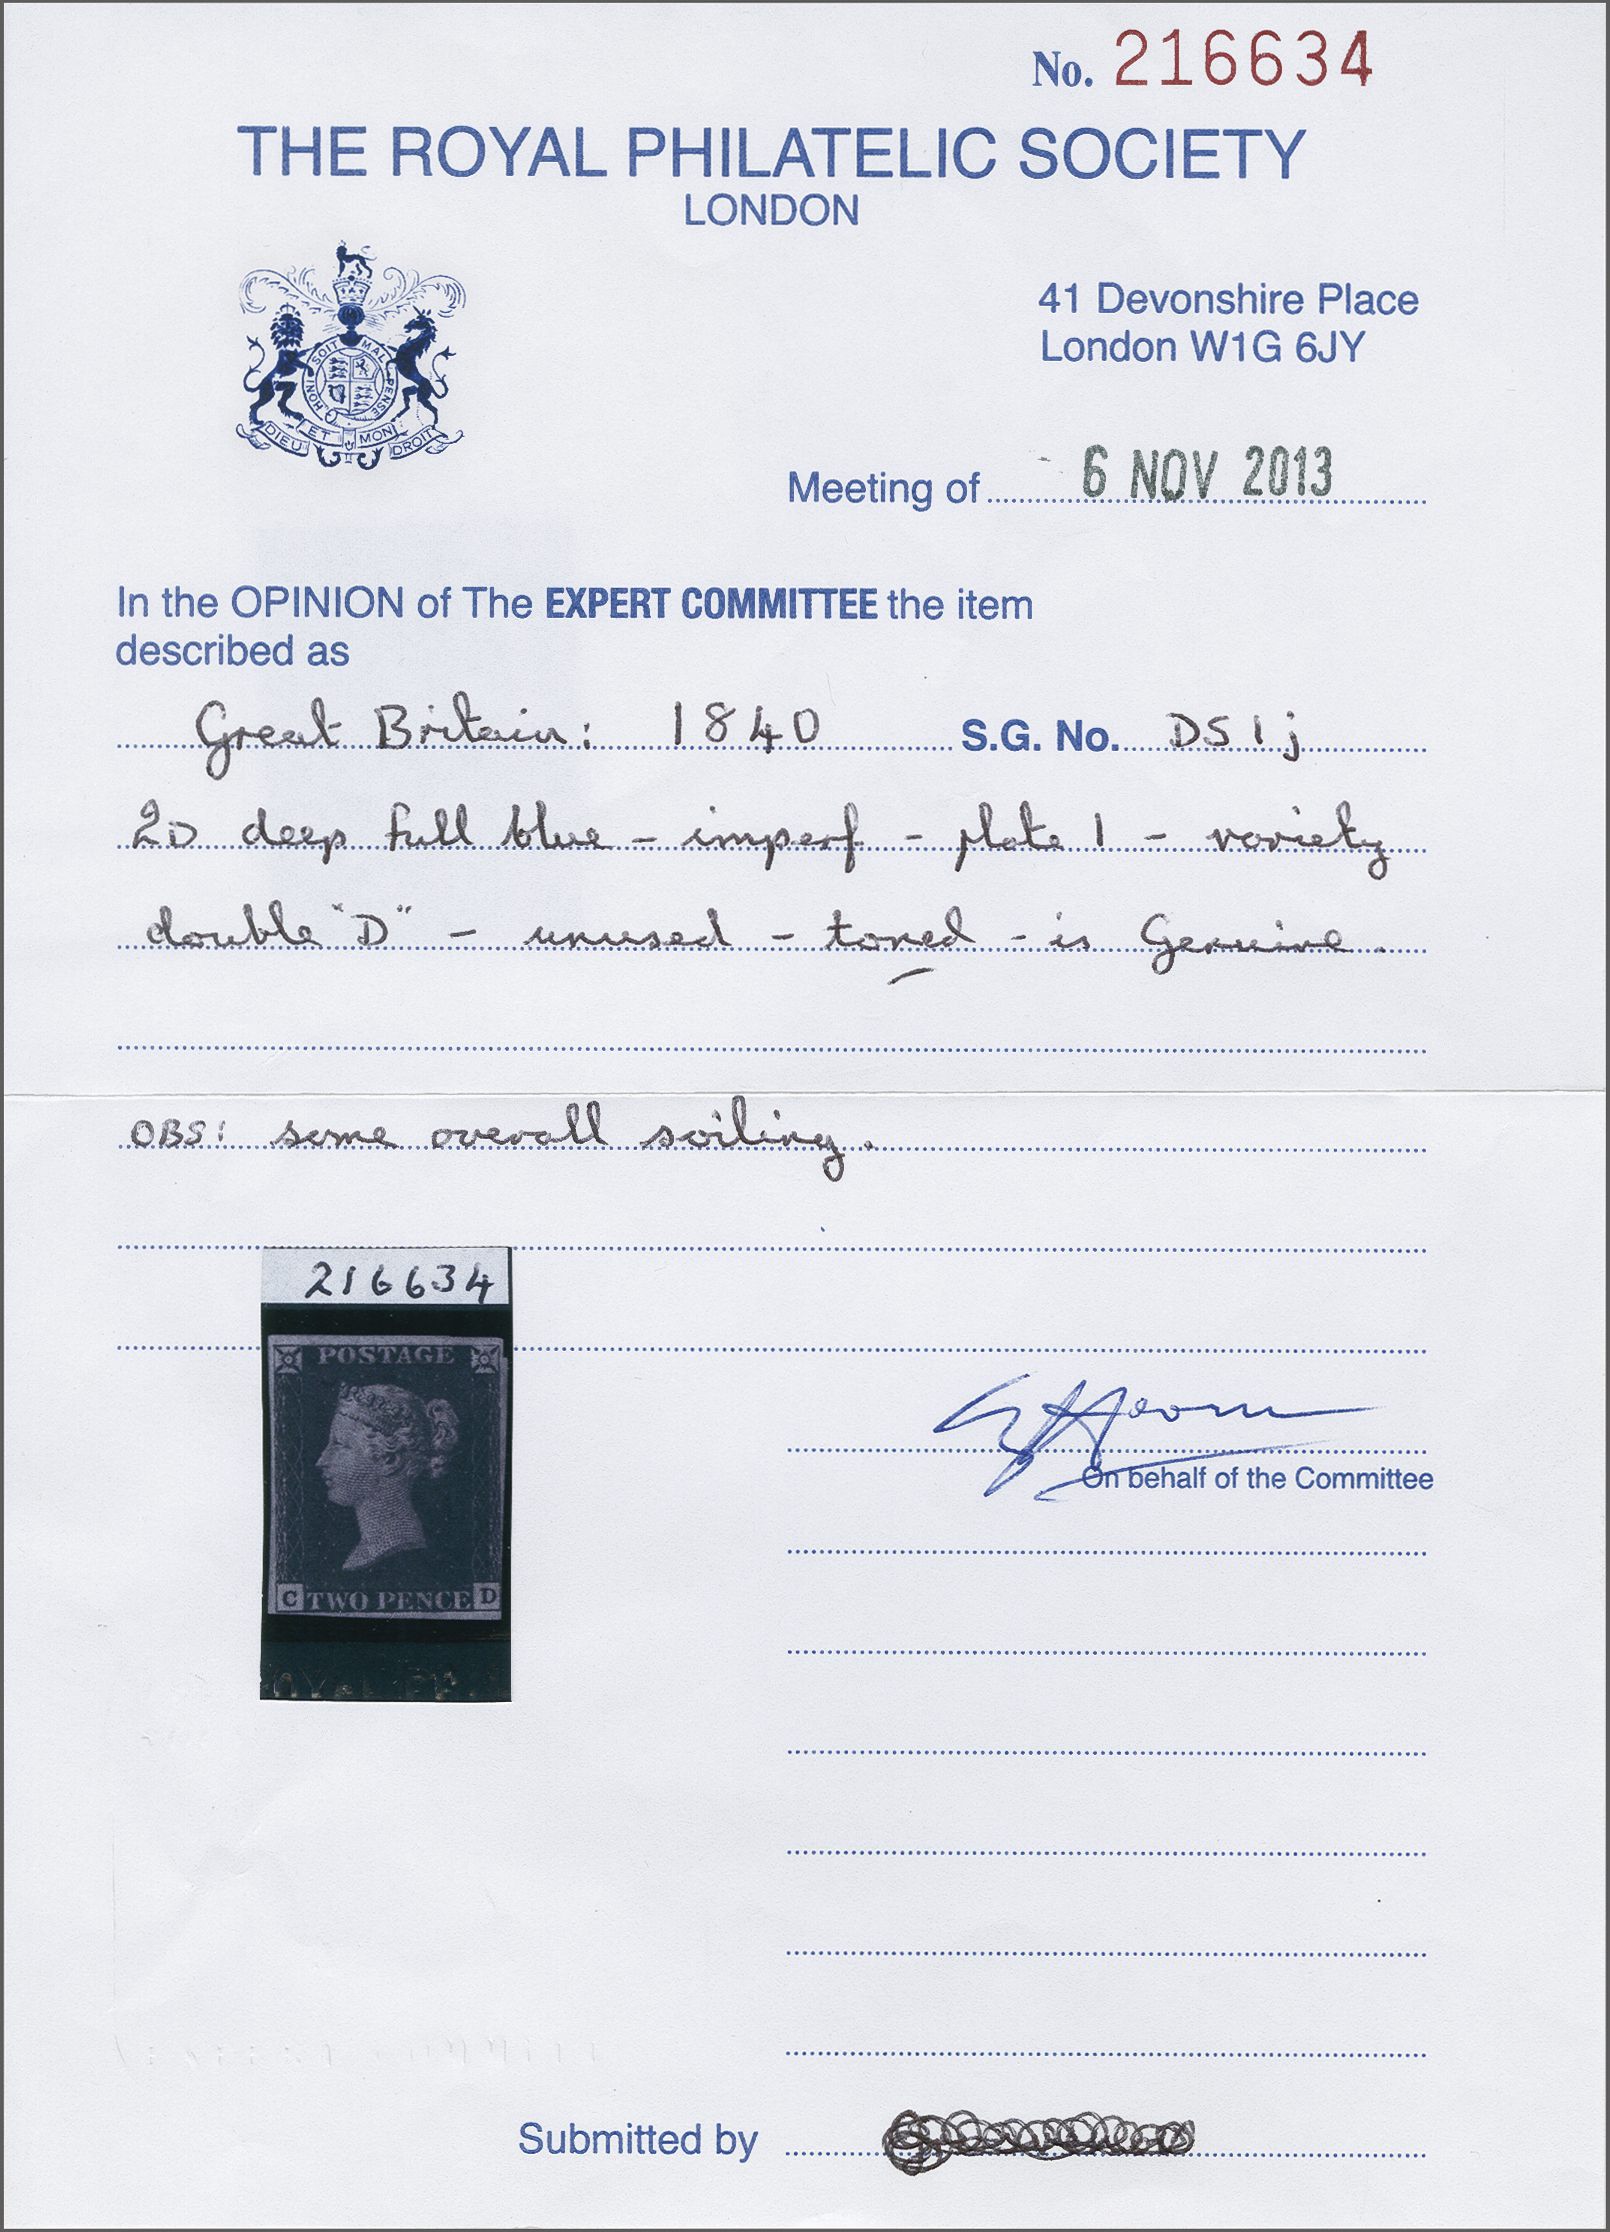 No. 216634
THE ROYAL PHILATELIC SOCIETY
LONDON
HONI SOIT MAL PENSE
DIEU ET MON DROIT
41 Devonshire Place
London W1G 6JY
Meeting of 6 NOV 2013
In the OPINION of The EXPERT COMMITTEE the item
described as
Great Britain: 1840 S.G. No. DS1j
2D deep full blue - imperf - plate 1 - variety
double "D" - unused - toned - is Genuine.
OBS: some overall soiling.
216634
POSTAGE
C TWO PENCE D
On behalf of the Committee
Submitted by